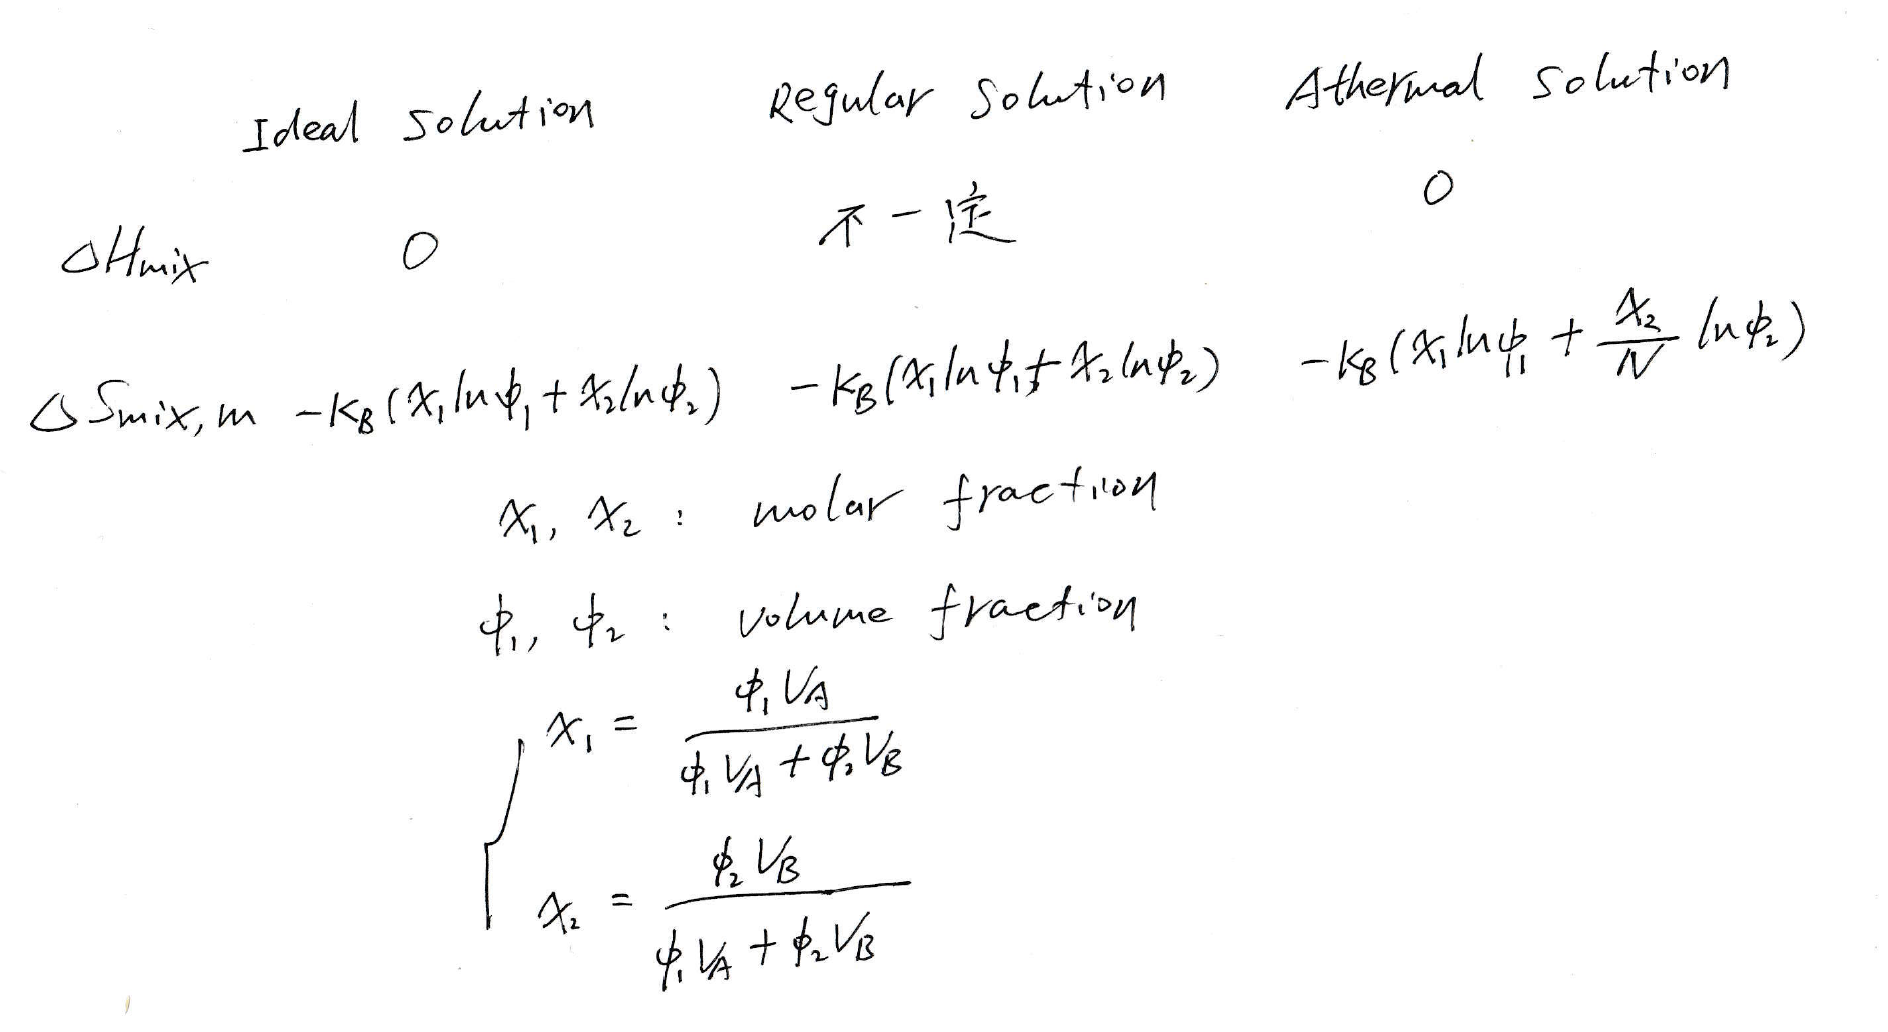 Ideal solution Regular Solution Athermal solution
ΔHmix 0 不一定 0
ΔSmix,m -KB(X₁lnϕ₁+X₂lnϕ₂) -KB(X₁lnϕ₁+X₂lnϕ₂) -KB(X₁lnϕ₁+X₂/N lnϕ₂)
X₁, X₂ : molar fraction
ϕ₁, ϕ₂ : volume fraction
X₁ = ϕ₁VA / (ϕ₁VA+ϕ₂VB)
X₂ = ϕ₂VB / (ϕ₁VA+ϕ₂VB)